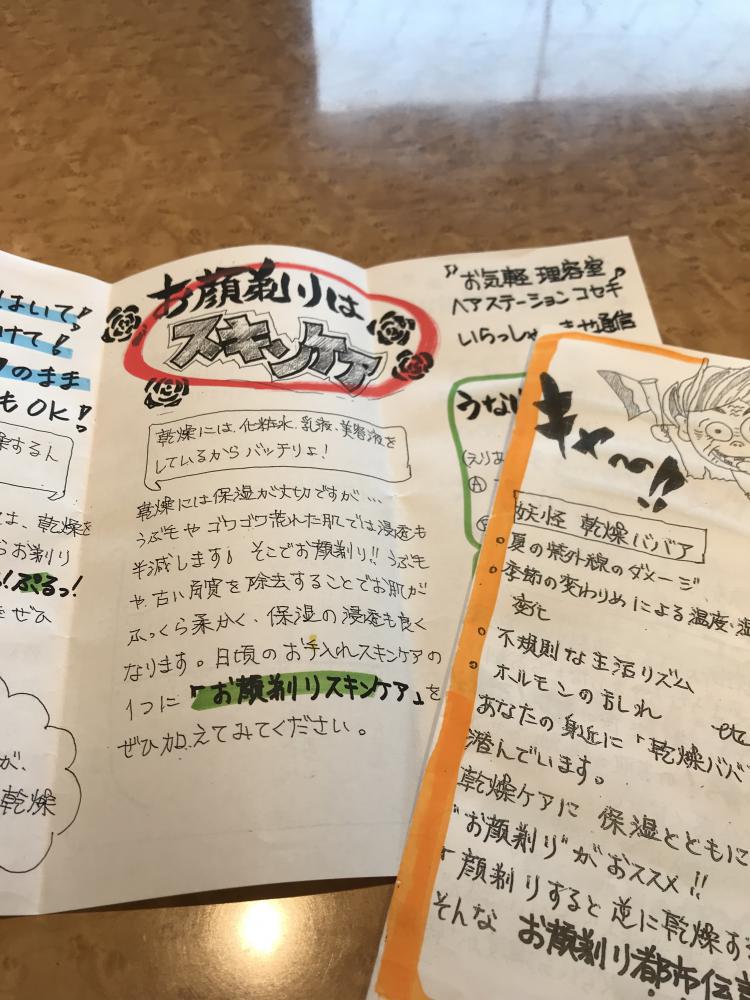 はいて!
けて!
のまま
もOK!
燥するん
は、乾燥を
らお剃り
!ぷるっ!
ぜひ
が、
乾燥
お顔剃りは
スキンケア
乾燥には、化粧水、乳液、美容液を
しているからバッチリよ!
乾燥には保湿が大切ですが…
うぶ毛やゴワゴワ荒れた肌では浸透も
半減します。そこでお顔剃り!!うぶ毛
や古い角質を除去することでお肌が
ふっくら柔かく、保湿の浸透も良く
なります。日頃のお手入れスキンケアの
1つに「お顔剃りスキンケア」を
ぜひ加えてみてください。
お気軽理容室
ヘアステーションコセキ
いらっしゃ ませ通信
うなじ
(えりあ
Ⓐ
キャ〜!!
妖怪 乾燥ババア
・夏の紫外線のダメージ
・季節の変わりめによる温度・湿
変化
・不規則な生活リズム
・ホルモンのみだれ
etc
あなたの身近に「乾燥ババ
潜んでいます。
乾燥ケアに 保湿とともに
"お顔剃り"がおススメ!!
「顔剃りすると逆に乾燥す
そんな お顔剃り都市伝説